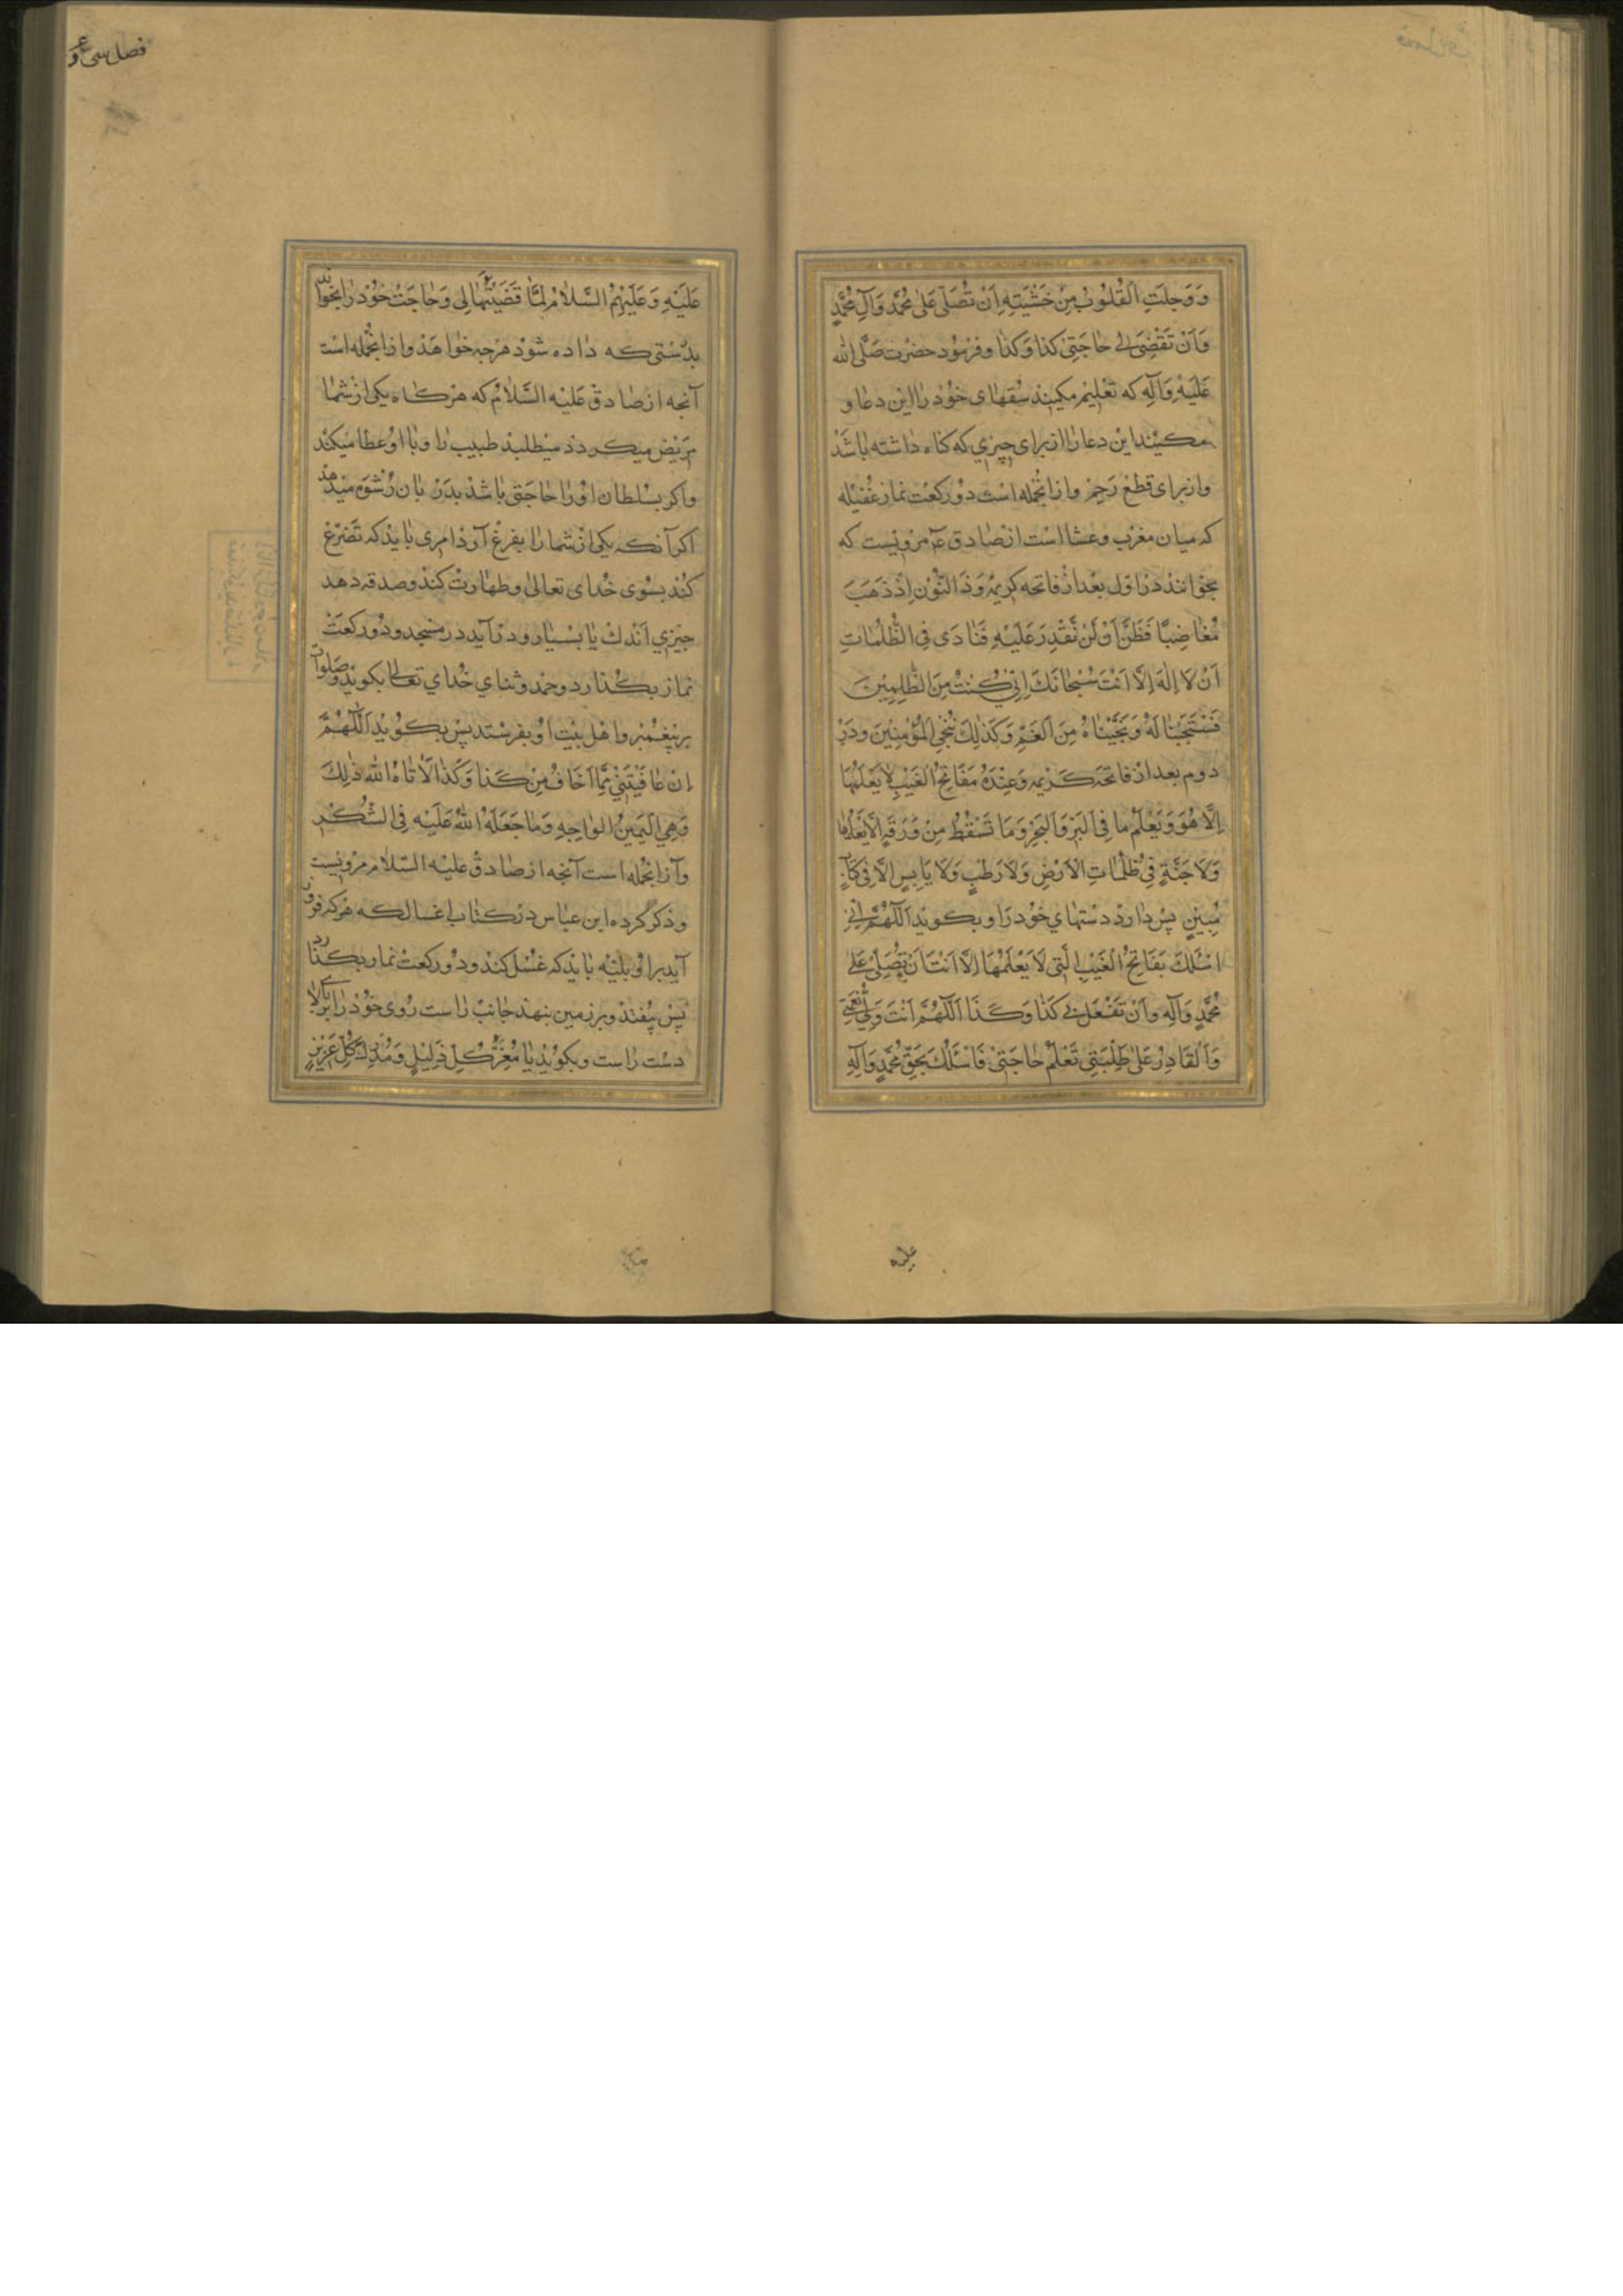 وَوَجِلَتِ القُلُوبُ مِنْ خَشْيَتِهِ اَنْ تُصَلِّىَ عَلىٰ مُحَمَّدٍ وَآلِ مُحَمَّدٍ
وَاَنْ تَقْضِىَ لي حٰاجَتِىْ كَذا وَكَذٰا وفرمود حضرت صَلَّى الله
عَلَيْهِ وَآلِهِ كه تعليم مكنيد سفهاى خود را اين دعا و
مكنيد اين دعا را از براى چيزي كه كناه داشته باشد
واز براى قطع رَحِمْ واز انجمله است دو ركعت نماز غفيله
كه ميان مغرب وعشا است از صادق ع مرويست كه
بخوانند در اول بعد از فاتحه كريمهٔ وَذَا النُّوْنِ اِذْ ذَهَبَ
مُغٰاضِبًا فَظَنَّ اَوْ لَنْ نَقْدِرَ عَلَيْهِ فَنٰادَى فِى الظُّلُمٰاتِ
اَنْ لاَ اِلٰهَ اِلاَّ اَنْتَ سُبْحٰانَكَ اِنّى كُنتُ مِنَ الظّٰلِمِيْنَ
فَسْتَجَبْنٰا لَهُ وَنَجَّيْنٰاهُ مِنَ الْغَمِّ وَكَذٰلِكَ نُنْجِي الْمُؤْمِنِيْنَ ودَرْ
دوم بعد از فاتحه كريمه وَعِنْدَهُ مَفَاتِحُ الْغَيْبِ لاٰ يَعْلَمُهٰا
اِلاَّ هُوَ وَيَعْلَمُ ما فِى الْبَرِّ وَالْبَحْرِ وَمَا تَسْقُطُ مِنْ وَرَقَةٍ اِلاَّ يَعْلَمُهٰا
وَلاَ حَبَّةٍ فِىْ ظُلُمٰاتِ الْاَرْضِ وَلاَ رَطْبٍ وَلاَ يَابِسٍ اِلاَّ فِى كِتَابٍ
مُبِيْنٍ پس دارد دستهاي خود را وبكويد اَللّٰهُمَّ اِنّى
اسْئَلُكَ بِمَفَاتِحِ الْغَيْبِ الَّتِى لاَ يَعْلَمُهَا اِلاَّ اَنْتَ اَنْ تُصَلِّىَ عَلىٰ
مُحَمَّدٍ وَآلِهِ وَاَنْ تَفْعَلَ بى كَذٰا وَكَذَا اَللّٰهُمَّ اَنْتَ وَلِىُّ نِعْمَتِىْ
وَالْقَادِرُ عَلىٰ طَلِبَتِى تَعْلَمُ حٰاجَتِىْ فَاَسْئَلُكَ بِحَقِّ مُحَمَّدٍ وَآلِهِ
عليه
فصل سى و
عَلَيْهِ وَعَلَيْهِمُ السَّلاٰمُ لَمَّا قَضَيْتَهٰا لِى وَحٰاجَت خود را بخواند
بدرستى كه داده شود هرچه خواهد واز انجمله است
آنچه از صادق عليه السّلامُ كه هركاه يكى از شما
مريض ميكردد ميطلبد طبيب را وبااو عطا ميكند
واكر بسلطان اورا حاجتى باشد بدر بان رشوه ميدهد
اكر آنكه يكى از شما را بفرغ آورد امرى بايد كه تضرع
كند بسوى خداى تعالى وطهارت كند وصدقه دهد
چيزي اندك يا بسيار ودر آيد در مسجد ودو ركعت
نماز بكذارد وحمد وثناي خداي تعالى بكويد وصلوات
بر پيغمبر واهل بيت او بفرستد پس بكويد اَللّٰهُمَّ
اِنْ عٰافَيْتَنِىْ مِمَّا اَخَافُ مِنْ كَذا وَكَذا اَلاٰ تٰاهُ الله ذٰلِكَ
وَهِي الْيَمِينُ الوٰاجِبَهِ وَمٰا جَعَلَهُ اللهُ عَلَيْهِ فِى الشُّكْرِ
وآز انجمله است آنچه از صادق عليه السّلام مرويست
وذكر كرده ابن عباس در كتاب اغسال كه هركه فرو
آيد براو بليّه بايد كه غسل كند ودو ركعت نماز بكذارد
پس بيفتد وبر زمين بنهد جانب راست روى خود را بربالاى
دست راست وبكويد يٰا مُعِزَّ كُلِّ ذَلِيْلٍ وَمُذِلَّ كُلِّ عَزِيْزٍ